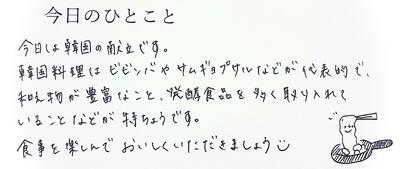 今日のひとこと
今日は韓国の献立です。
韓国料理はビビンバやサムギョプサルなどが代表的で、
和え物が豊富なこと、発酵食品を多く取り入れて
いることなどが特ちょうです。
食事を楽しんでおいしくいただきましょう